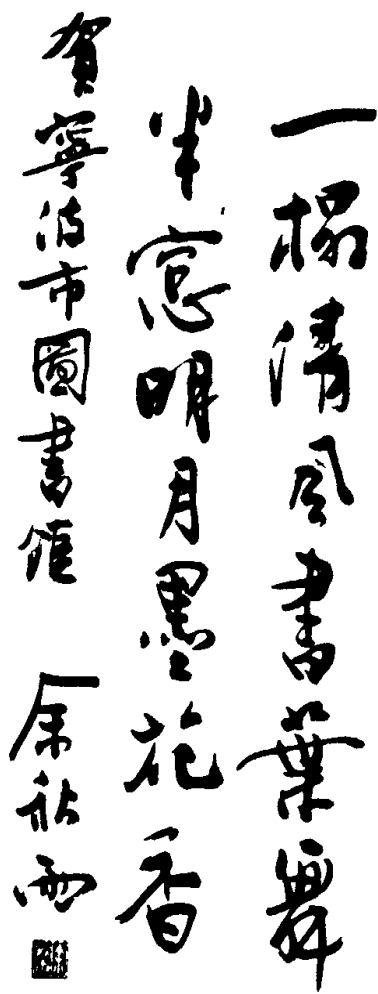 一榻清風書葉舞
半窓明月墨花香
賀寧波市圖書館
余秋雨